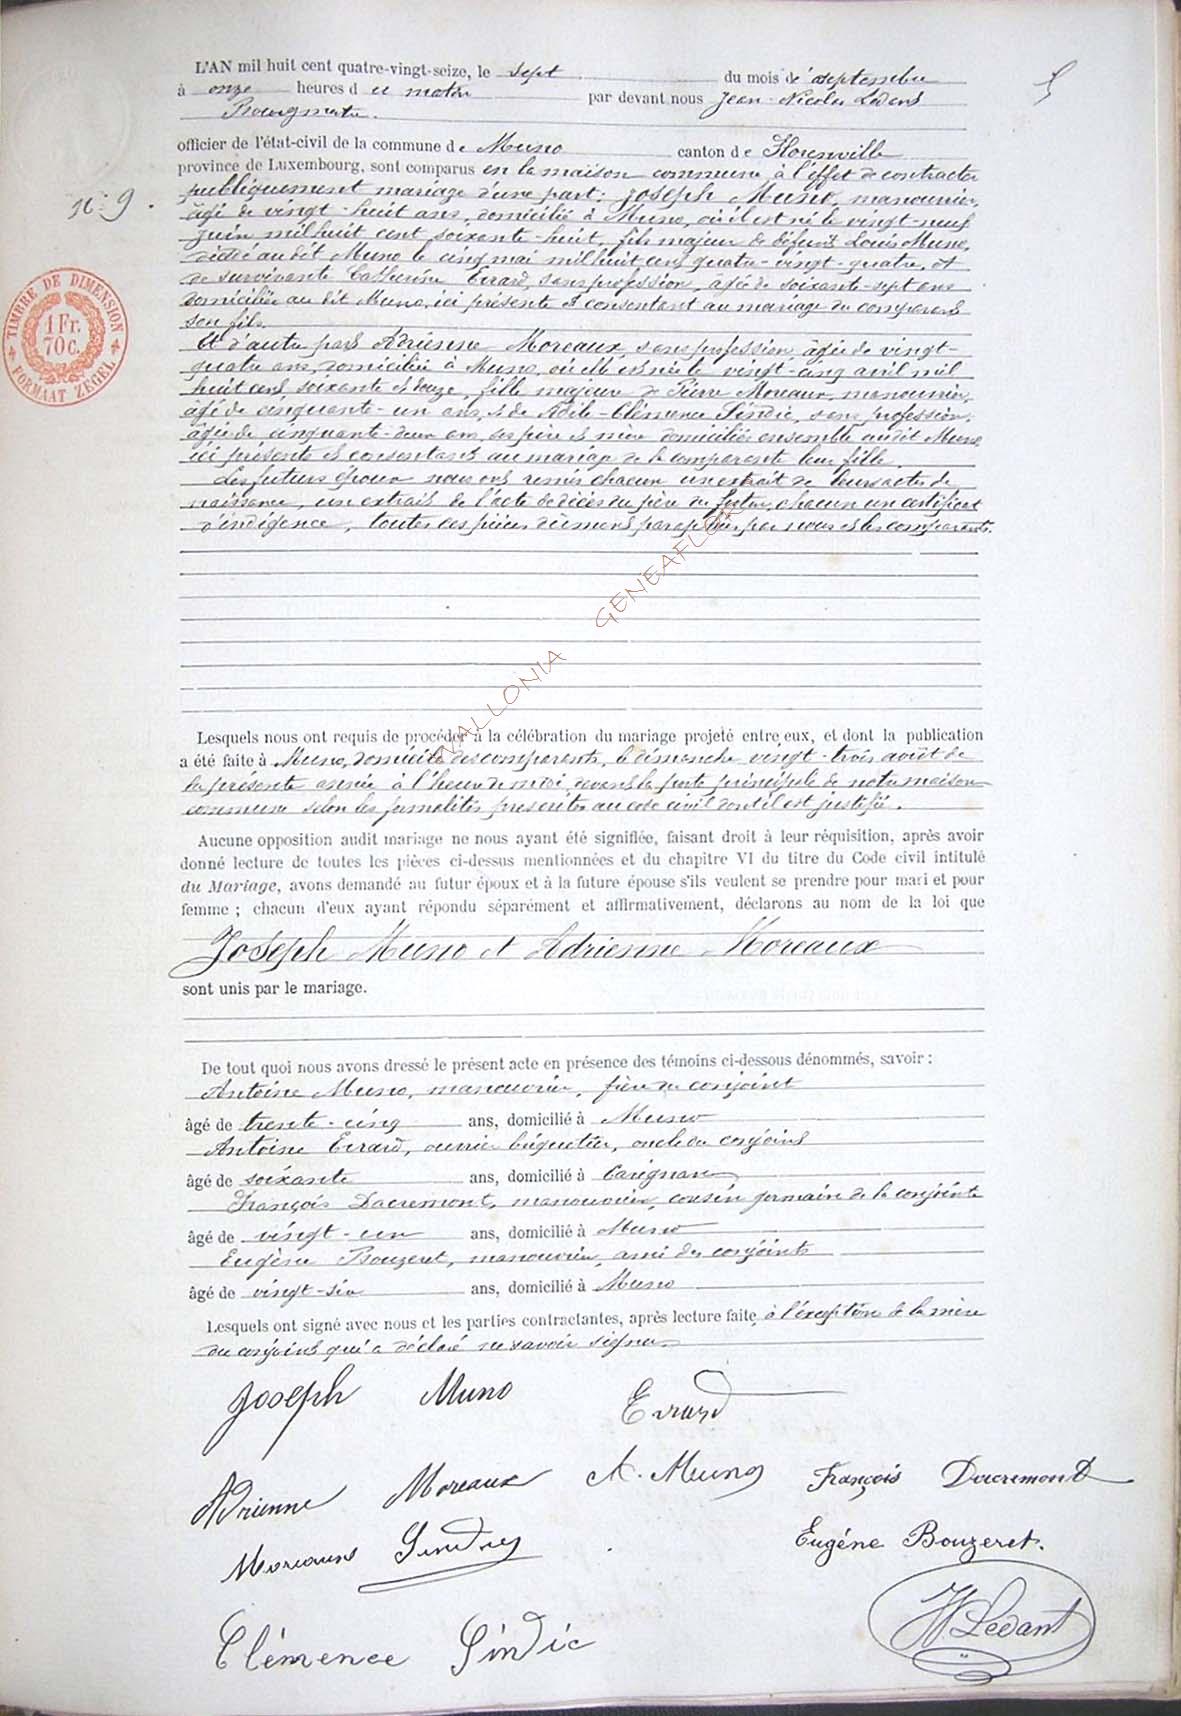 L'AN mil huit cent quatre-vingt-seize, le sept du mois de septembre
à onze heures d u matin par devant nous Jean-Nicolas Ledant
Bourgmestre.
officier de l'état-civil de la commune de Muno canton de Florenville
province de Luxembourg, sont comparus en la maison commune à l'effet de contracter
N° 9.
publiquement mariage d'une part: Joseph Muno, manouvrier,
âgé de vingt-huit ans, domicilié à Muno, où il est né le vingt-neuf
juin mil huit cent soixante-huit, fils majeur de défunt Louis Muno,
décédé au dit Muno le cinq mai mil huit cent quatre-vingt-quatre, et
de survivante Catherine Evrard, sans profession, âgée de soixante-sept ans
domiciliée au dit Muno, ici présente et consentant au mariage du comparant
son fils.
Et d'autre part Adrienne Moreaux, sans profession, âgée de vingt-
quatre ans, domiciliée à Muno, où elle est née le vingt-cinq avril mil
huit cent soixante et douze, fille majeure de Pierre Moreaux, manouvrier,
âgé de cinquante-un ans, et de Adèle-Clémence Sindic, sans profession,
âgée de cinquante-deux ans, ses père et mère domiciliés ensemble au dit Muno
ici présents et consentants au mariage de la comparante leur fille.
Les futurs époux nous ont remis chacun un extrait de leurs actes de
naissance, un extrait de l'acte de décès du père du futur, chacun un certificat
d'indigence, toutes ces pièces dûment paraphées par nous et les comparants.
TIMBRE DE DIMENSION
1 Fr.
70 c.
FORMAAT ZEGEL
WALLONIA GENEAFLOR
Lesquels nous ont requis de procéder à la célébration du mariage projeté entre eux, et dont la publication
a été faite à Muno, domicile des comparants, le dimanche vingt-trois août de
la présente année à l'heure de midi, devant la porte principale de notre maison
commune selon les formalités prescrites au code civil dont il est justifié.
Aucune opposition audit mariage ne nous ayant été signifiée, faisant droit à leur réquisition, après avoir
donné lecture de toutes les pièces ci-dessus mentionnées et du chapitre VI du titre du Code civil intitulé
du Mariage, avons demandé au futur époux et à la future épouse s'ils veulent se prendre pour mari et pour
femme ; chacun d'eux ayant répondu séparément et affirmativement, déclarons au nom de la loi que
Joseph Muno et Adrienne Moreaux
sont unis par le mariage.
De tout quoi nous avons dressé le présent acte en présence des témoins ci-dessous dénommés, savoir :
Antoine Muno, manouvrier, frère du conjoint
âgé de trente-cinq ans, domicilié à Muno
Antoine Evrard, ouvrier briquetier, oncle du conjoint
âgé de soixante ans, domicilié à Carignan
François Dacremont, manouvrier, cousin germain de la conjointe
âgé de vingt-un ans, domicilié à Muno
Eugène Bouzeret, manouvrier, ami des conjoints
âgé de vingt-six ans, domicilié à Muno
Lesquels ont signé avec nous et les parties contractantes, après lecture faite, à l'exception de la mère
du conjoint qui a déclaré ne savoir signer.
Joseph Muno Evrard
Adrienne Moreaux A. Muno François Dacremont
Moreaux Sindic Eugéne Bouzeret.
Clémence Sindic Ledant